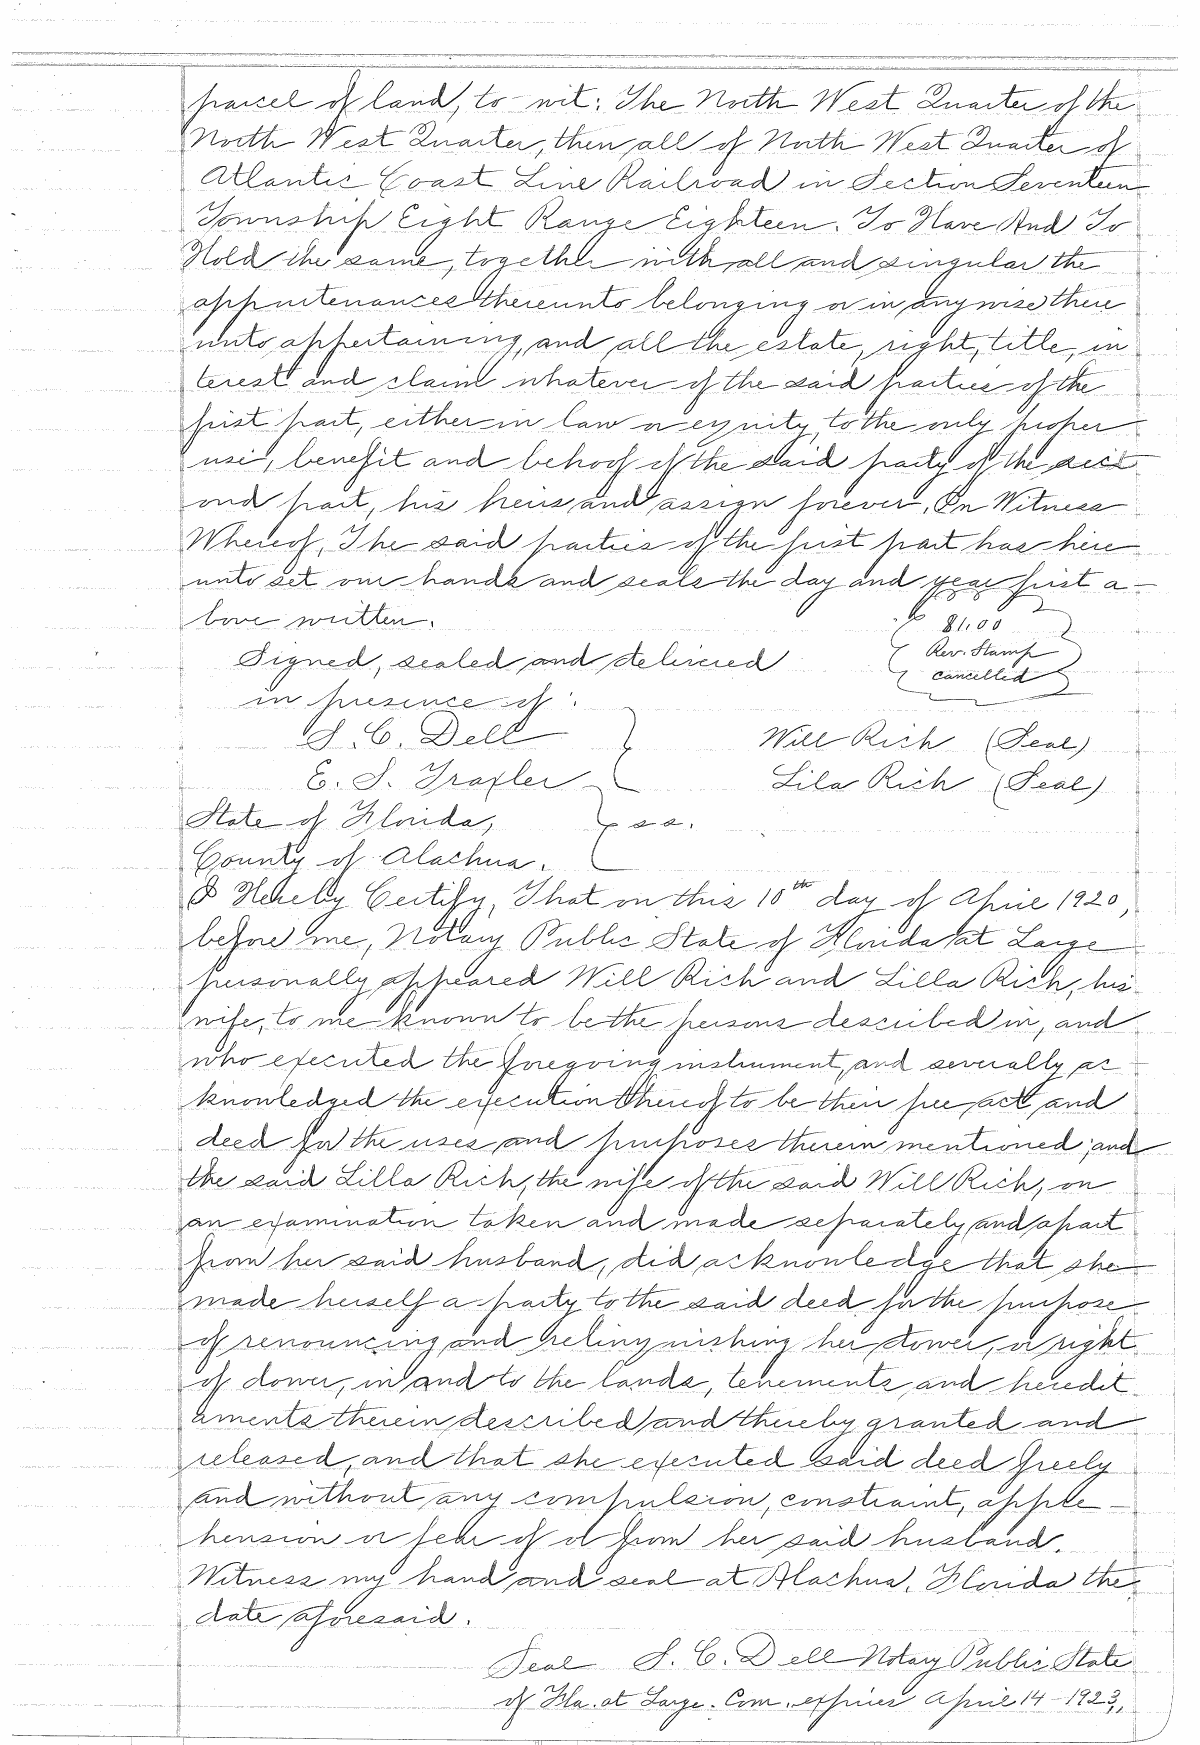 parcel of land, to-wit: The North West Quarter of the
North West Quarter, then all of North West Quarter of
Atlantic Coast Line Railroad in Section Seventeen
Township Eight Range Eighteen. To Have And To
Hold the same, together with all and singular the
appurtenances thereunto belonging or in anywise there
unto appertaining, and all the estate, right, title, in
terest and claim whatever of the said parties of the
first part, either in law or equity, to the only proper
use, benefit and behoof of the said party of the sec
ond part, his heirs and assign forever. In Witness
Whereof, The said parties of the first part has here
unto set our hands and seals the day and year first a-
bove written.
$1.00
Rev. Stamp
cancelled
Signed, sealed and delivered
in presence of:
S. C. Dell Will Rich (Seal)
E. S. Traxler Lila Rich (Seal)
State of Florida, ss.
County of Alachua.
I Hereby Certify, That on this 10th day of April 1920,
before me, Notary Public State of Florida at Large
personally appeared Will Rich and Lilla Rich, his
wife, to me known to be the persons described in, and
who executed the foregoing instrument, and severally ac
knowledged the execution thereof to be their free act and
deed for the uses and purposes therein mentioned; and
the said Lilla Rich, the wife of the said Will Rich, on
an examination taken and made separately and apart
from her said husband, did acknowledge that she
made herself a party to the said deed for the purpose
of renouncing and relinquishing her dower, or right
of dower, in and to the lands, tenements and heredit
aments therein described and thereby granted and
released, and that she executed said deed freely
and without any compulsion, constraint, appre-
hension or fear of or from her said husband.
Witness my hand and seal at Alachua, Florida the
date aforesaid.
Seal S. C. Dell Notary Public State
of Fla. at Large. Com. expires April 14-1923.